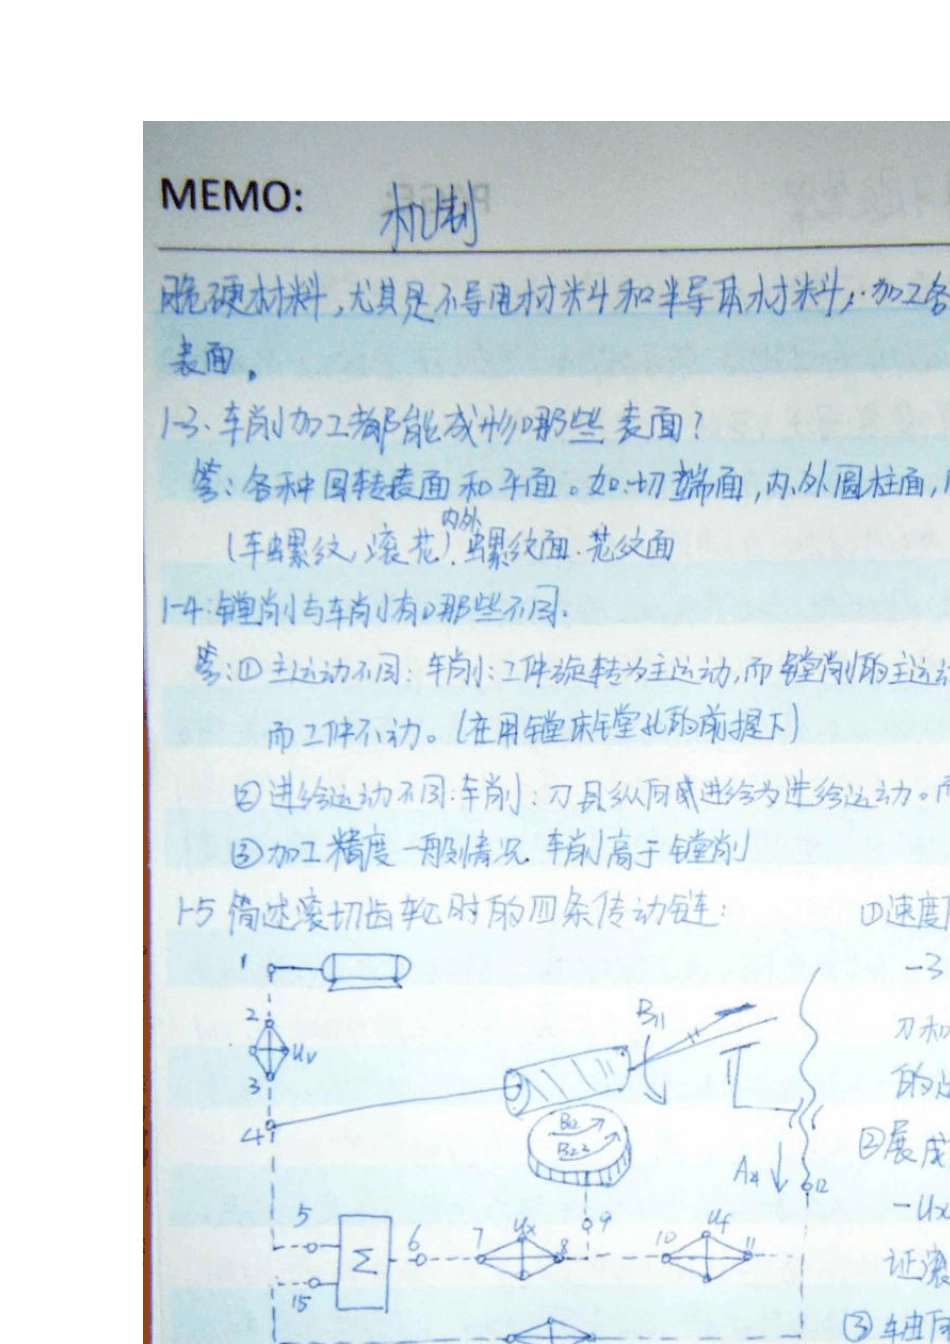 MEMO: 机制
脆硬材料,尤其是不导电材料和半导体材料;加工各
表面。
1-3. 车削加工都能成形哪些表面?
答:各种回转表面和平面。如:切端面,内、外圆柱面,
(车螺纹,滚花).内外螺纹面.花纹面
1-4:镗削与车削有哪些不同.
答:① 主运动不同:车削:工件旋转为主运动,而镗削的主运动
而工件不动。(在用镗床镗孔的前提下)
② 进给运动不同:车削:刀具纵向或进给为进给运动。而
③ 加工精度 一般情况.车削高于镗削
1-5 简述滚切齿轮时的四条传动链: ①速度
1
-3
2
B11
uv
刀和
3
的
4
B12
B22
②展成
A4 12
-ux
5 6 7 ux 8 9 10 uf 11
Σ
证滚
15
③轴向